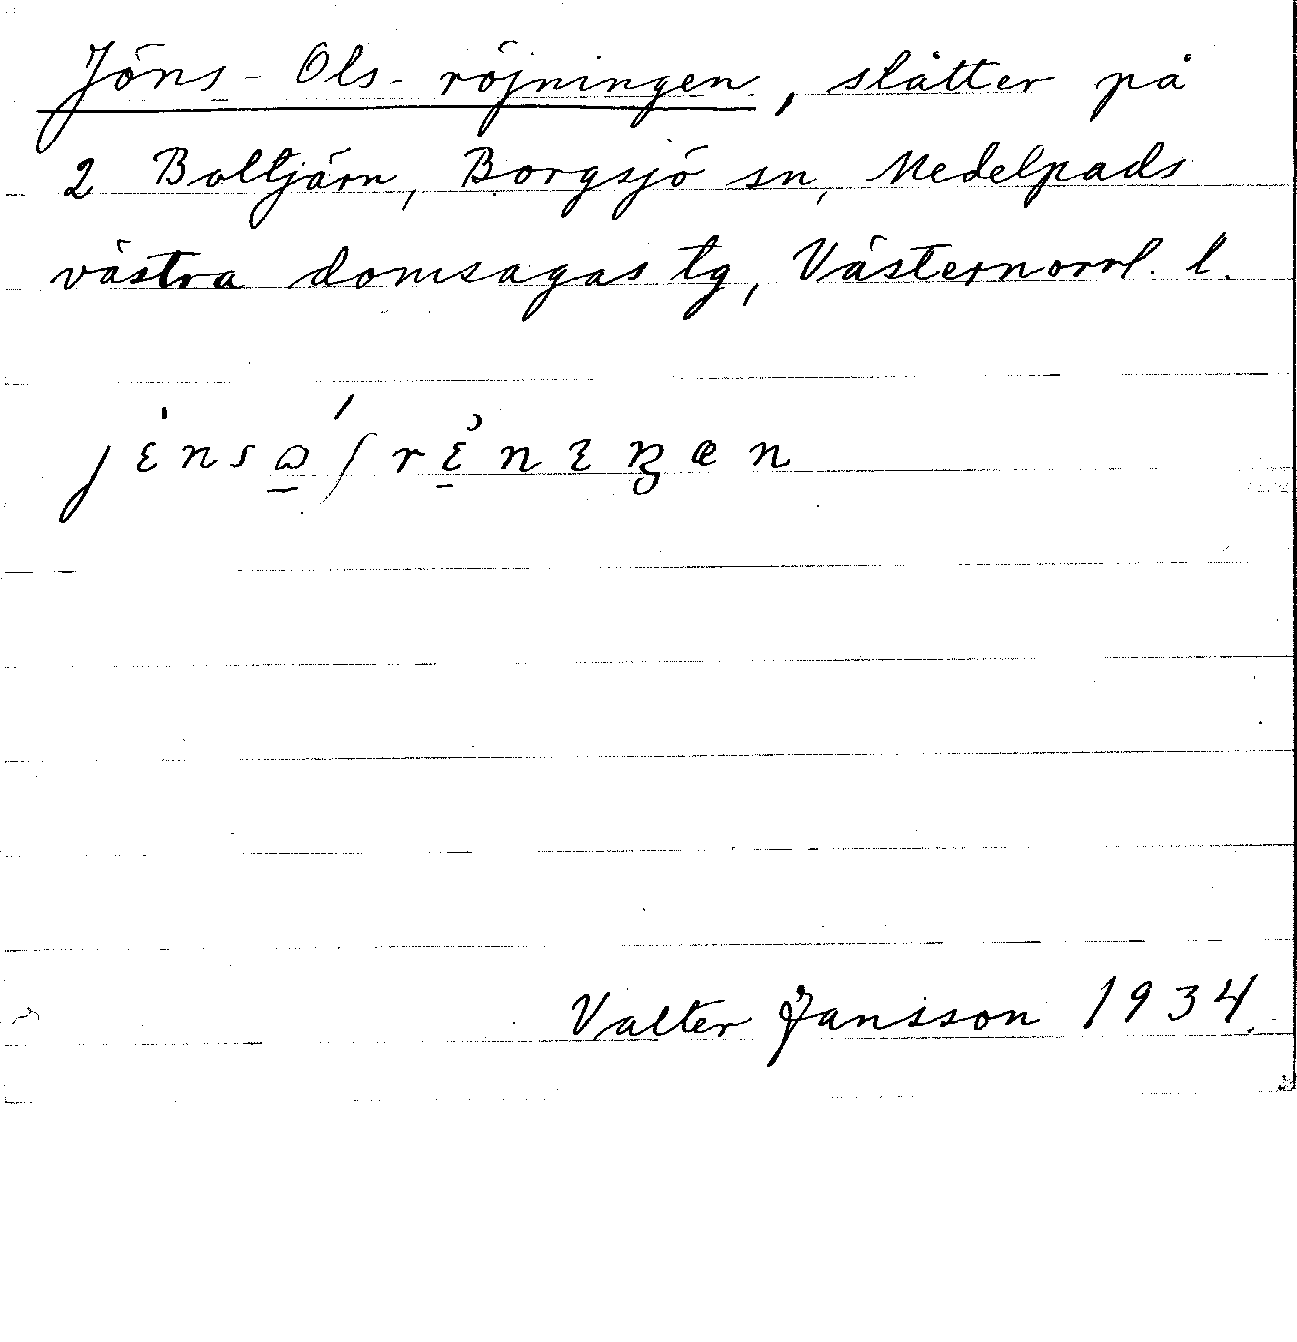 Jöns-Ols-röjningen, slåtter på
2 Boltjärn, Borgsjö sn, Medelpads
västra domsagas tg, Västernorrl. l.
Valter Jansson 1934.